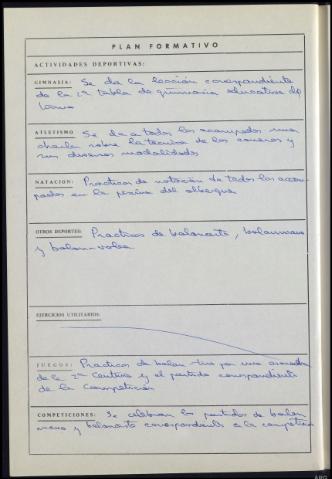 PLAN FORMATIVO
ACTIVIDADES DEPORTIVAS:
GIMNASIA: Se da la lección correspondiente
de la 2ª tabla de gimnasia educativa del
ATLETISMO Se da a todos los acampados una
charla sobre la tecnica de las carreras y
sus diversas modalidades
NATACION: Practicas de natación de todos los acam-
pados en la piscina del albergue
OTROS DEPORTES: Practicas de baloncesto, balonmano
y balon-volea
EJERCICIOS UTILITARIOS:
JUEGOS: Practicas de balon-tiro por una
de la 2ª Centuria y el partido correspondiente
de la Competición
COMPETICIONES: Se celebran los partidos de balon
mano y baloncesto correspondiente a la competición